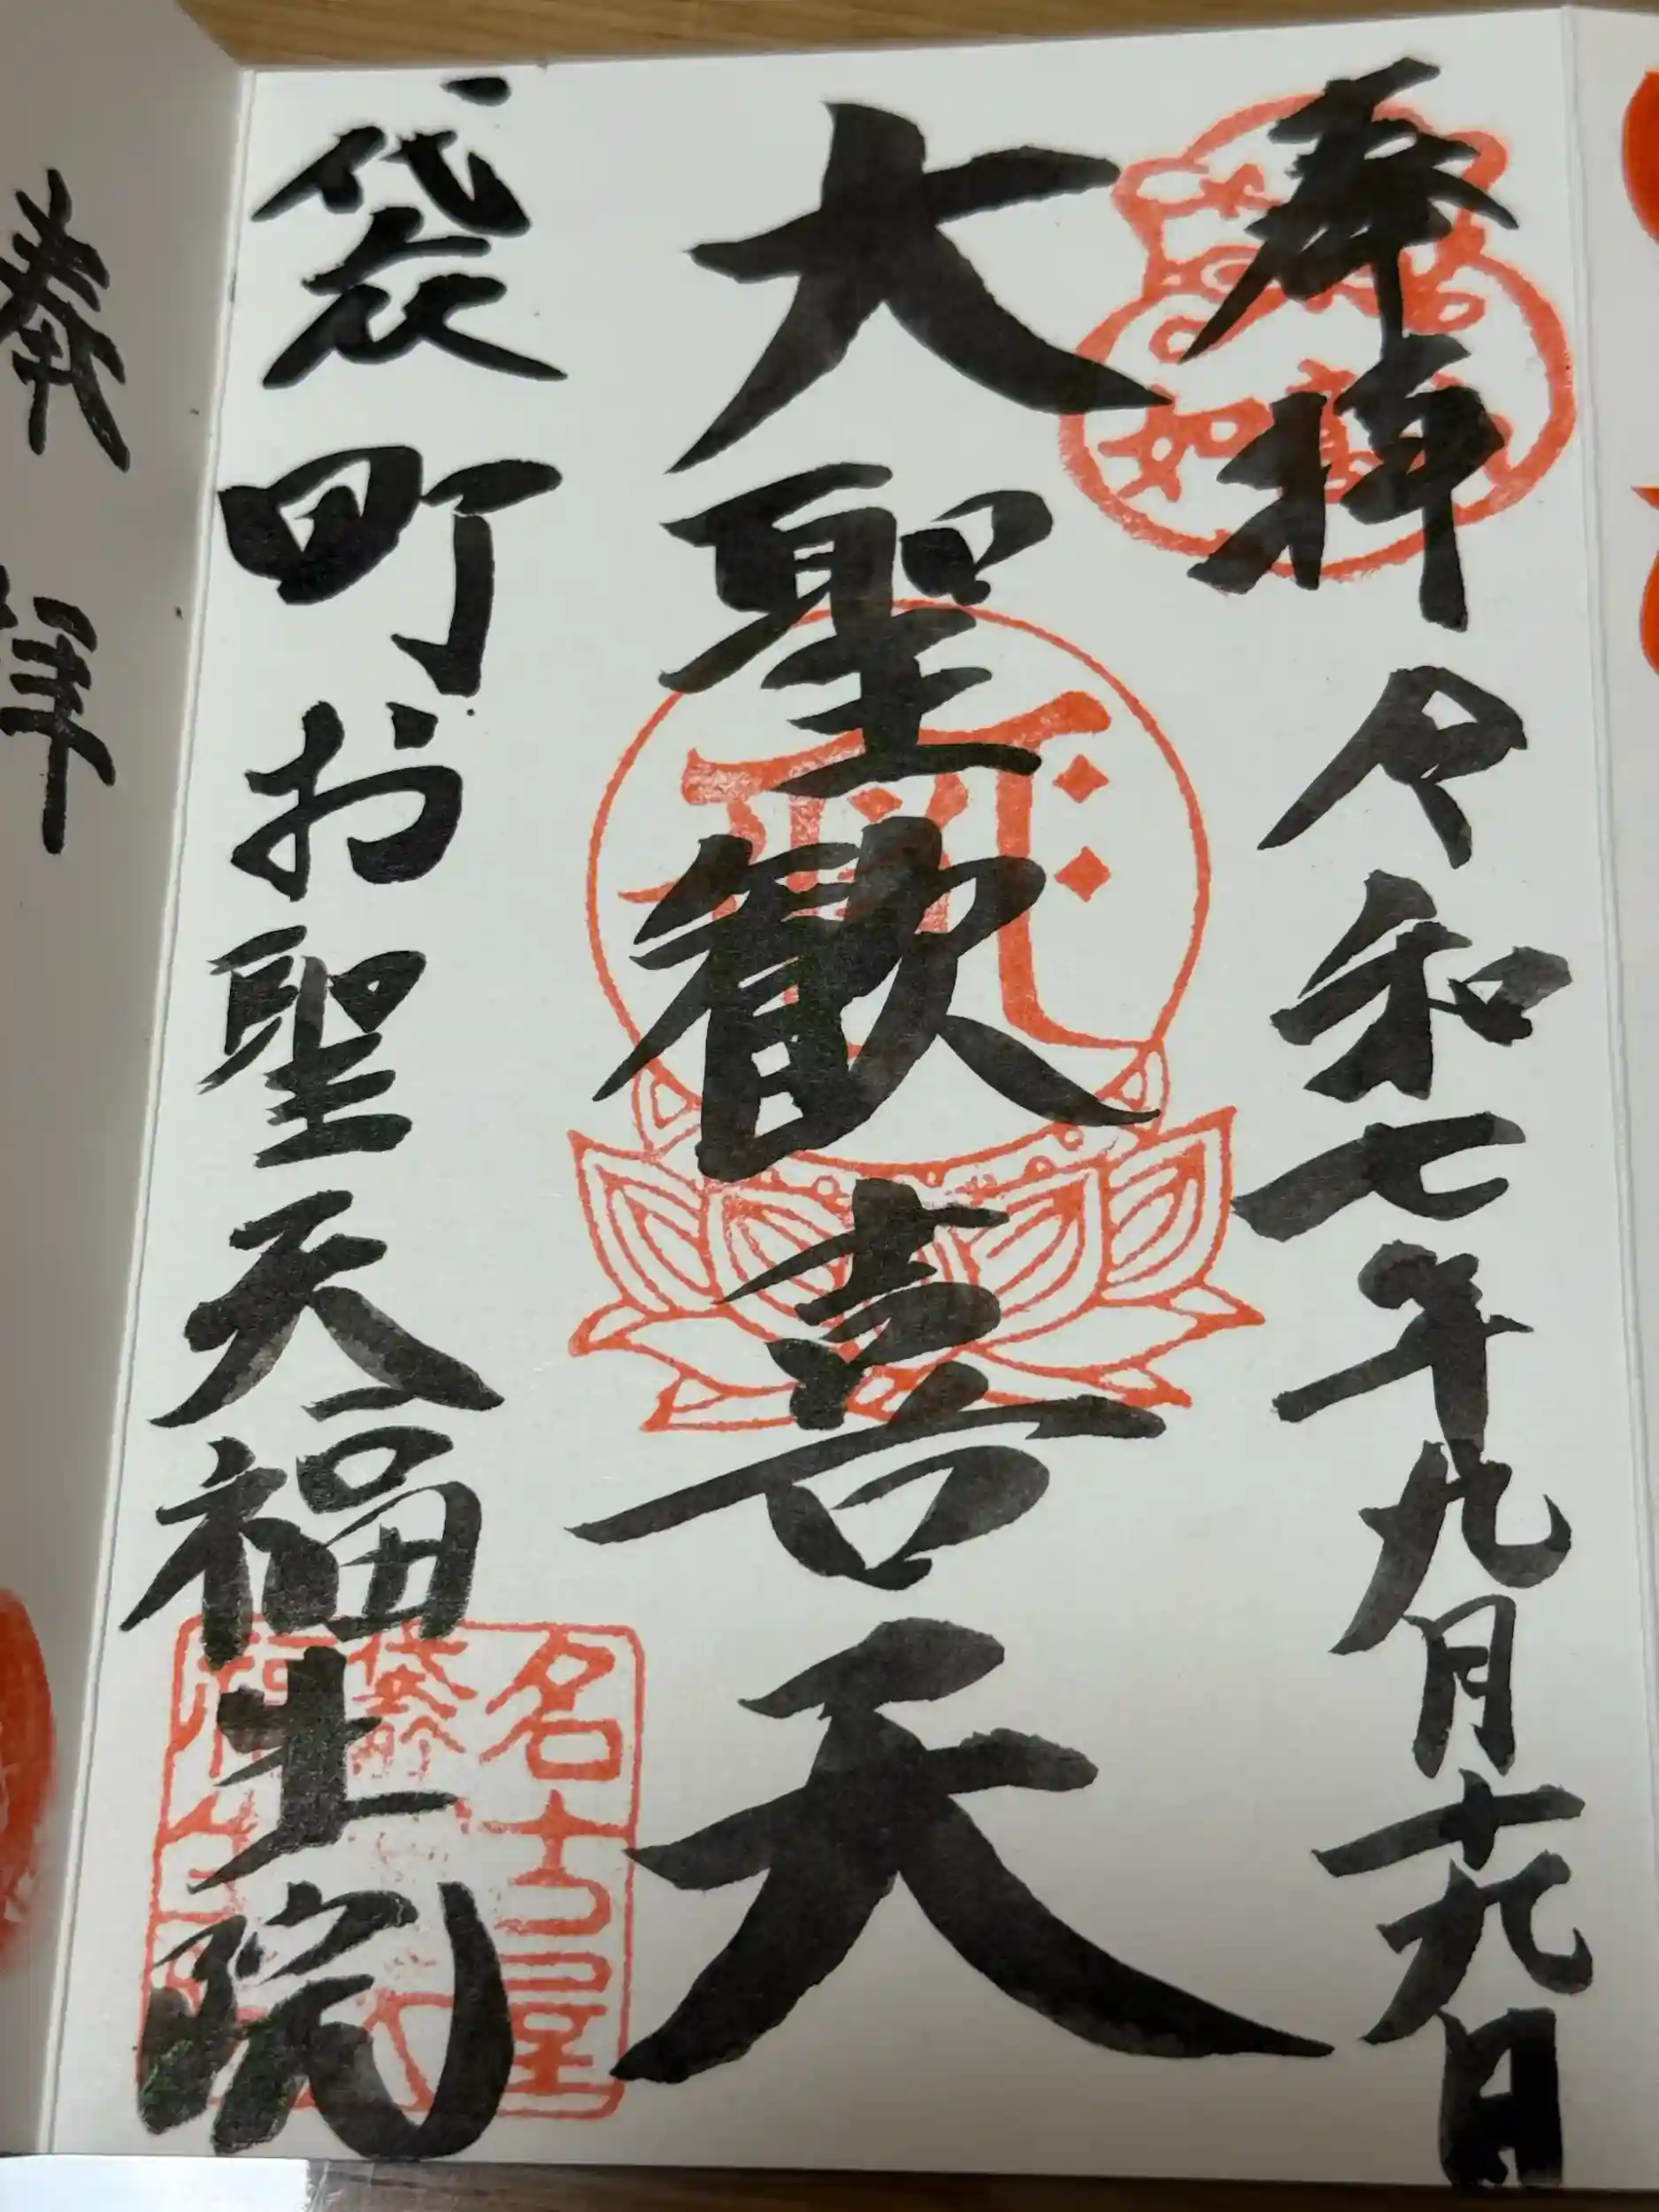 奉拝 令和七年九月十九日
大聖歓喜天
袋町お聖天福生院
如
名古屋
奉拝